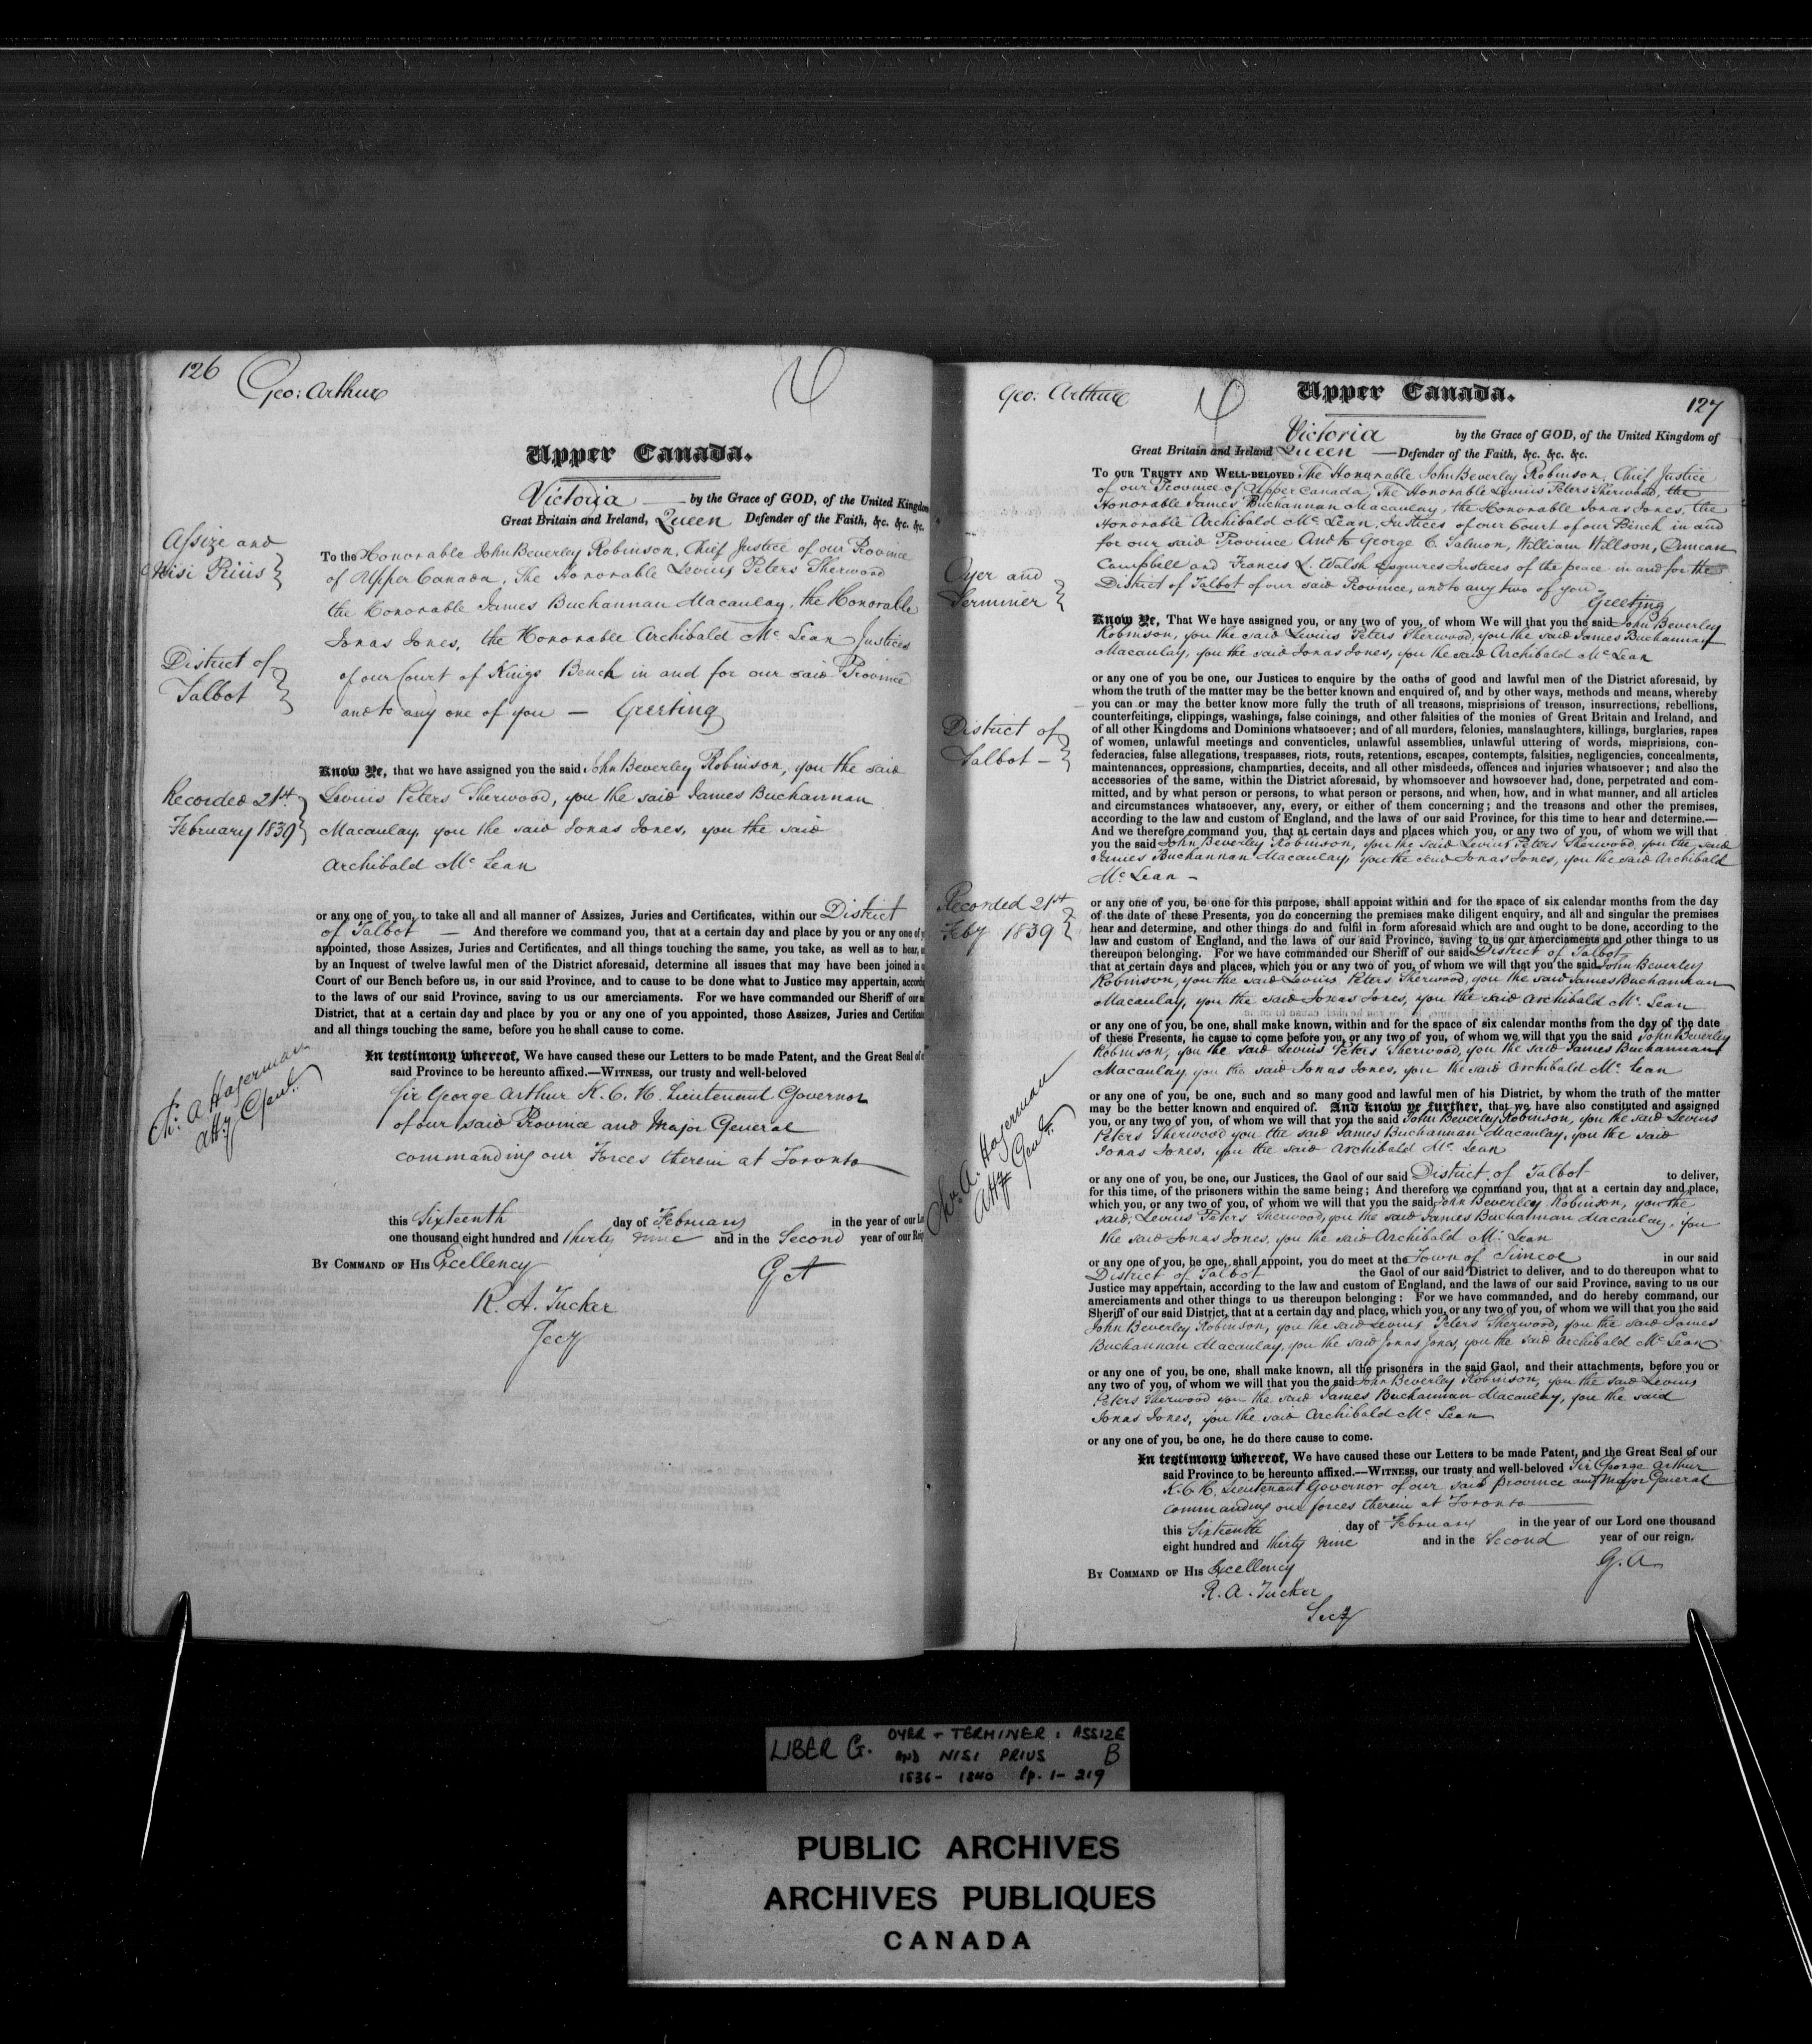 126
Geo: Arthur
Upper Canada.
Victoria by the Grace of GOD, of the United Kingdom
Great Britain and Ireland, Queen Defender of the Faith, &c. &c. &c.
Assize and
Nisi Prius
District of
Talbot
Recorded 21st
February 1839
To the Honorable John Beverley Robinson, Chief Justice of our Province
of Upper Canada, The Honorable Levius Peters Sherwood
the Honorable James Buchannan Macaulay, the Honorable
Jonas Jones, the Honorable Archibald Mc Lean Justices
of our Court of Kings Bench in and for our said Province
and to any one of you — Greeting
Know Ye, that we have assigned you the said John Beverley Robinson, you the said
Levius Peters Sherwood, you the said James Buchannan
Macaulay, you the said Jonas Jones, you the said
Archibald Mc Lean
or any one of you, to take all and all manner of Assizes, Juries and Certificates, within our District
of Talbot — And therefore we command you, that at a certain day and place by you or any one of
appointed, those Assizes, Juries and Certificates, and all things touching the same, you take, as well as to hear,
by an Inquest of twelve lawful men of the District aforesaid, determine all issues that may have been joined in
Court of our Bench before us, in our said Province, and to cause to be done what to Justice may appertain, accord
to the laws of our said Province, saving to us our amerciaments. For we have commanded our Sheriff of our
District, that at a certain day and place by you or any one of you appointed, those Assizes, Juries and Certificate
and all things touching the same, before you he shall cause to come.
Ch: A Hagerman
Atty Genl.
In testimony whereof, We have caused these our Letters to be made Patent, and the Great Seal of
said Province to be hereunto affixed.—Witness, our trusty and well-beloved
Sir George Arthur K. C. H. Lieutenant Governor
of our said Province and Major General
commanding our Forces therein at Toronto
this Sixteenth day of February in the year of our
one thousand eight hundred and thirty nine and in the Second year of our
By Command of His Excellency
G A
R. A. Tucker
Secy
Geo: Arthur
Upper Canada.
127
Victoria by the Grace of GOD, of the United Kingdom of
Great Britain and Ireland Queen — Defender of the Faith, &c. &c. &c.
Oyer and
Terminer
District of
Talbot —
Recorded 21st
Feby 1839
To our Trusty and Well-beloved The Honorable John Beverley Robinson, Chief Justice
of our Province of Upper Canada, The Honorable Levius Peters Sherwood, the
Honorable James Buchannan Macaulay, the Honorable Jonas Jones, the
Honorable Archibald Mc Lean, Justices of our Court of our Bench in and
for our said Province And to George C. Salmon, William Willson, Duncan
Campbell and Francis L. Walsh Esquires Justices of the peace in and for the
District of Talbot of our said Province, and to any two of you —
Greeting
Know Ye, That We have assigned you, or any two of you, of whom We will that you the said John Beverley
Robinson, you the said Levius Peters Sherwood, you the said James Buchannan
Macaulay, you the said Jonas Jones, you the said Archibald Mc Lean
or any one of you be one, our Justices to enquire by the oaths of good and lawful men of the District aforesaid, by
whom the truth of the matter may be the better known and enquired of, and by other ways, methods and means, whereby
you can or may the better know more fully the truth of all treasons, misprisions of treason, insurrections, rebellions,
counterfeitings, clippings, washings, false coinings, and other falsities of the monies of Great Britain and Ireland, and
of all other Kingdoms and Dominions whatsoever; and of all murders, felonies, manslaughters, killings, burglaries, rapes
of women, unlawful meetings and conventicles, unlawful assemblies, unlawful uttering of words, misprisions, con-
federacies, false allegations, trespasses, riots, routs, retentions, escapes, contempts, falsities, negligencies, concealments,
maintenances, oppressions, champarties, deceits, and all other misdeeds, offences and injuries whatsoever; and also the
accessories of the same, within the District aforesaid, by whomsoever and howsoever had, done, perpetrated and com-
mitted, and by what person or persons, to what person or persons, and when, how, and in what manner, and all articles
and circumstances whatsoever, any, every, or either of them concerning; and the treasons and other the premises,
according to the law and custom of England, and the laws of our said Province, for this time to hear and determine.—
And we therefore command you, that at certain days and places which you, or any two of you, of whom we will that
you the said John Beverley Robinson, you the said Levius Peters Sherwood, you the said
James Buchannan Macaulay, you the said Jonas Jones, you the said Archibald
Mc Lean —
or any one of you, be one for this purpose, shall appoint within and for the space of six calendar months from the day
of the date of these Presents, you do concerning the premises make diligent enquiry, and all and singular the premises
hear and determine, and other things do and fulfil in form aforesaid which are and ought to be done, according to the
law and custom of England, and the laws of our said Province, saving to us our amerciaments and other things to us
thereupon belonging. For we have commanded our Sheriff of our said District of Talbot
that at certain days and places, which you or any two of you, of whom we will that you the said John Beverley
Robinson, you the said Levius Peters Sherwood, you the said James Buchannan
Macaulay, you the said Jonas Jones, you the said Archibald Mc Lean
or any one of you, be one, shall make known, within and for the space of six calendar months from the day of the date
of these Presents, he cause to come before you, or any two of you, of whom we will that you the said John Beverley
Robinson, you the said Levius Peters Sherwood, you the said James Buchannan
Macaulay, you the said Jonas Jones, you the said Archibald Mc Lean
or any one of you, be one, such and so many good and lawful men of his District, by whom the truth of the matter
may be the better known and enquired of. And know ye further, that we have also constituted and assigned
you, or any two of you, of whom we will that you the said John Beverley Robinson, you the said Levius
Peters Sherwood you the said James Buchannan Macaulay, you the said
Jonas Jones, you the said Archibald Mc Lean
Chs. A. Hagerman
Atty Genl.
or any one of you, be one, our Justices, the Gaol of our said District of Talbot to deliver,
for this time, of the prisoners within the same being; And therefore we command you, that at a certain day and place,
which you, or any two of you, of whom we will that you the said John Beverley Robinson, you the
said, Levius Peters Sherwood, you the said James Buchannan Macaulay, you
the said Jonas Jones, you the said Archibald Mc Lean
or any one of you, be one, shall appoint, you do meet at the Town of Simcoe in our said
District of Talbot the Gaol of our said District to deliver, and to do thereupon what to
Justice may appertain, according to the law and custom of England, and the laws of our said Province, saving to us our
amerciaments and other things to us thereupon belonging: For we have commanded, and do hereby command, our
Sheriff of our said District, that at a certain day and place, which you, or any two of you, of whom we will that you the said
John Beverley Robinson, you the said Levius Peters Sherwood, you the said James
Buchannan Macaulay, you the said Jonas Jones, you the said Archibald Mc Lean
or any one of you, be one, shall make known, all the prisoners in the said Gaol, and their attachments, before you or
any two of you, of whom we will that you the said John Beverley Robinson, you the said Levius
Peters Sherwood you the said James Buchannan Macaulay, you the said
Jonas Jones, you the said Archibald Mc Lean
or any one of you, be one, he do there cause to come.
In testimony whereof, We have caused these our Letters to be made Patent, and the Great Seal of our
said Province to be hereunto affixed.—Witness, our trusty and well-beloved Sir George Arthur
K. C. H. Lieutenant Governor of our said province and Major General
Commanding our forces therein at Toronto
this Sixteenth day of February in the year of our Lord one thousand
eight hundred and thirty nine and in the Second year of our reign.
By Command of His Excellency
G. A
R. A. Tucker
Secy
LIBER G. OYER + TERMINER: ASSIZE
AND NISI PRIUS B
1836-1840 pp. 1-219
PUBLIC ARCHIVES
ARCHIVES PUBLIQUES
CANADA